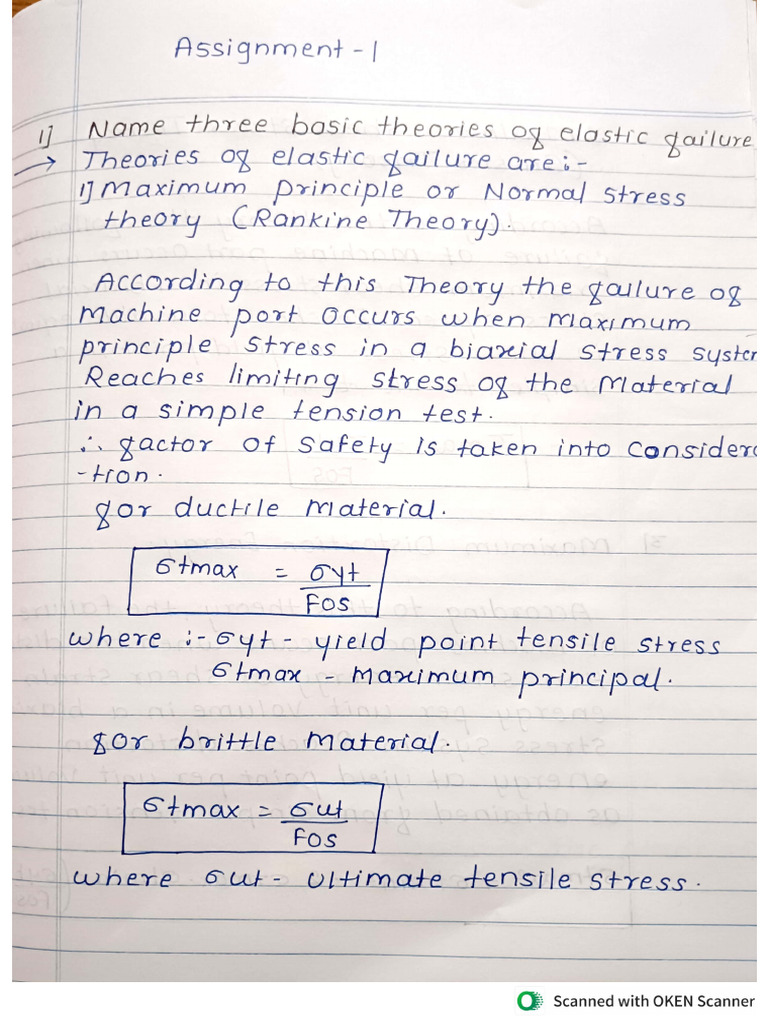 Assignment - 1
1] Name three basic theories of elastic failure
→ Theories of elastic failure are:-
1] Maximum principle or Normal stress
theory (Rankine Theory).
According to this Theory the failure of
Machine port occurs when maximum
principle stress in a biaxial stress system
Reaches limiting stress of the Material
in a simple tension test.
∴ factor of safety is taken into considera
-tion.
for ductile Material.
σtmax = σyt
FOS
where :- σyt - yield point tensile stress
σtmax - Maximum principal.
for brittle Material.
σtmax = σut
FOS
where σut - ultimate tensile stress.
Scanned with OKEN Scanner